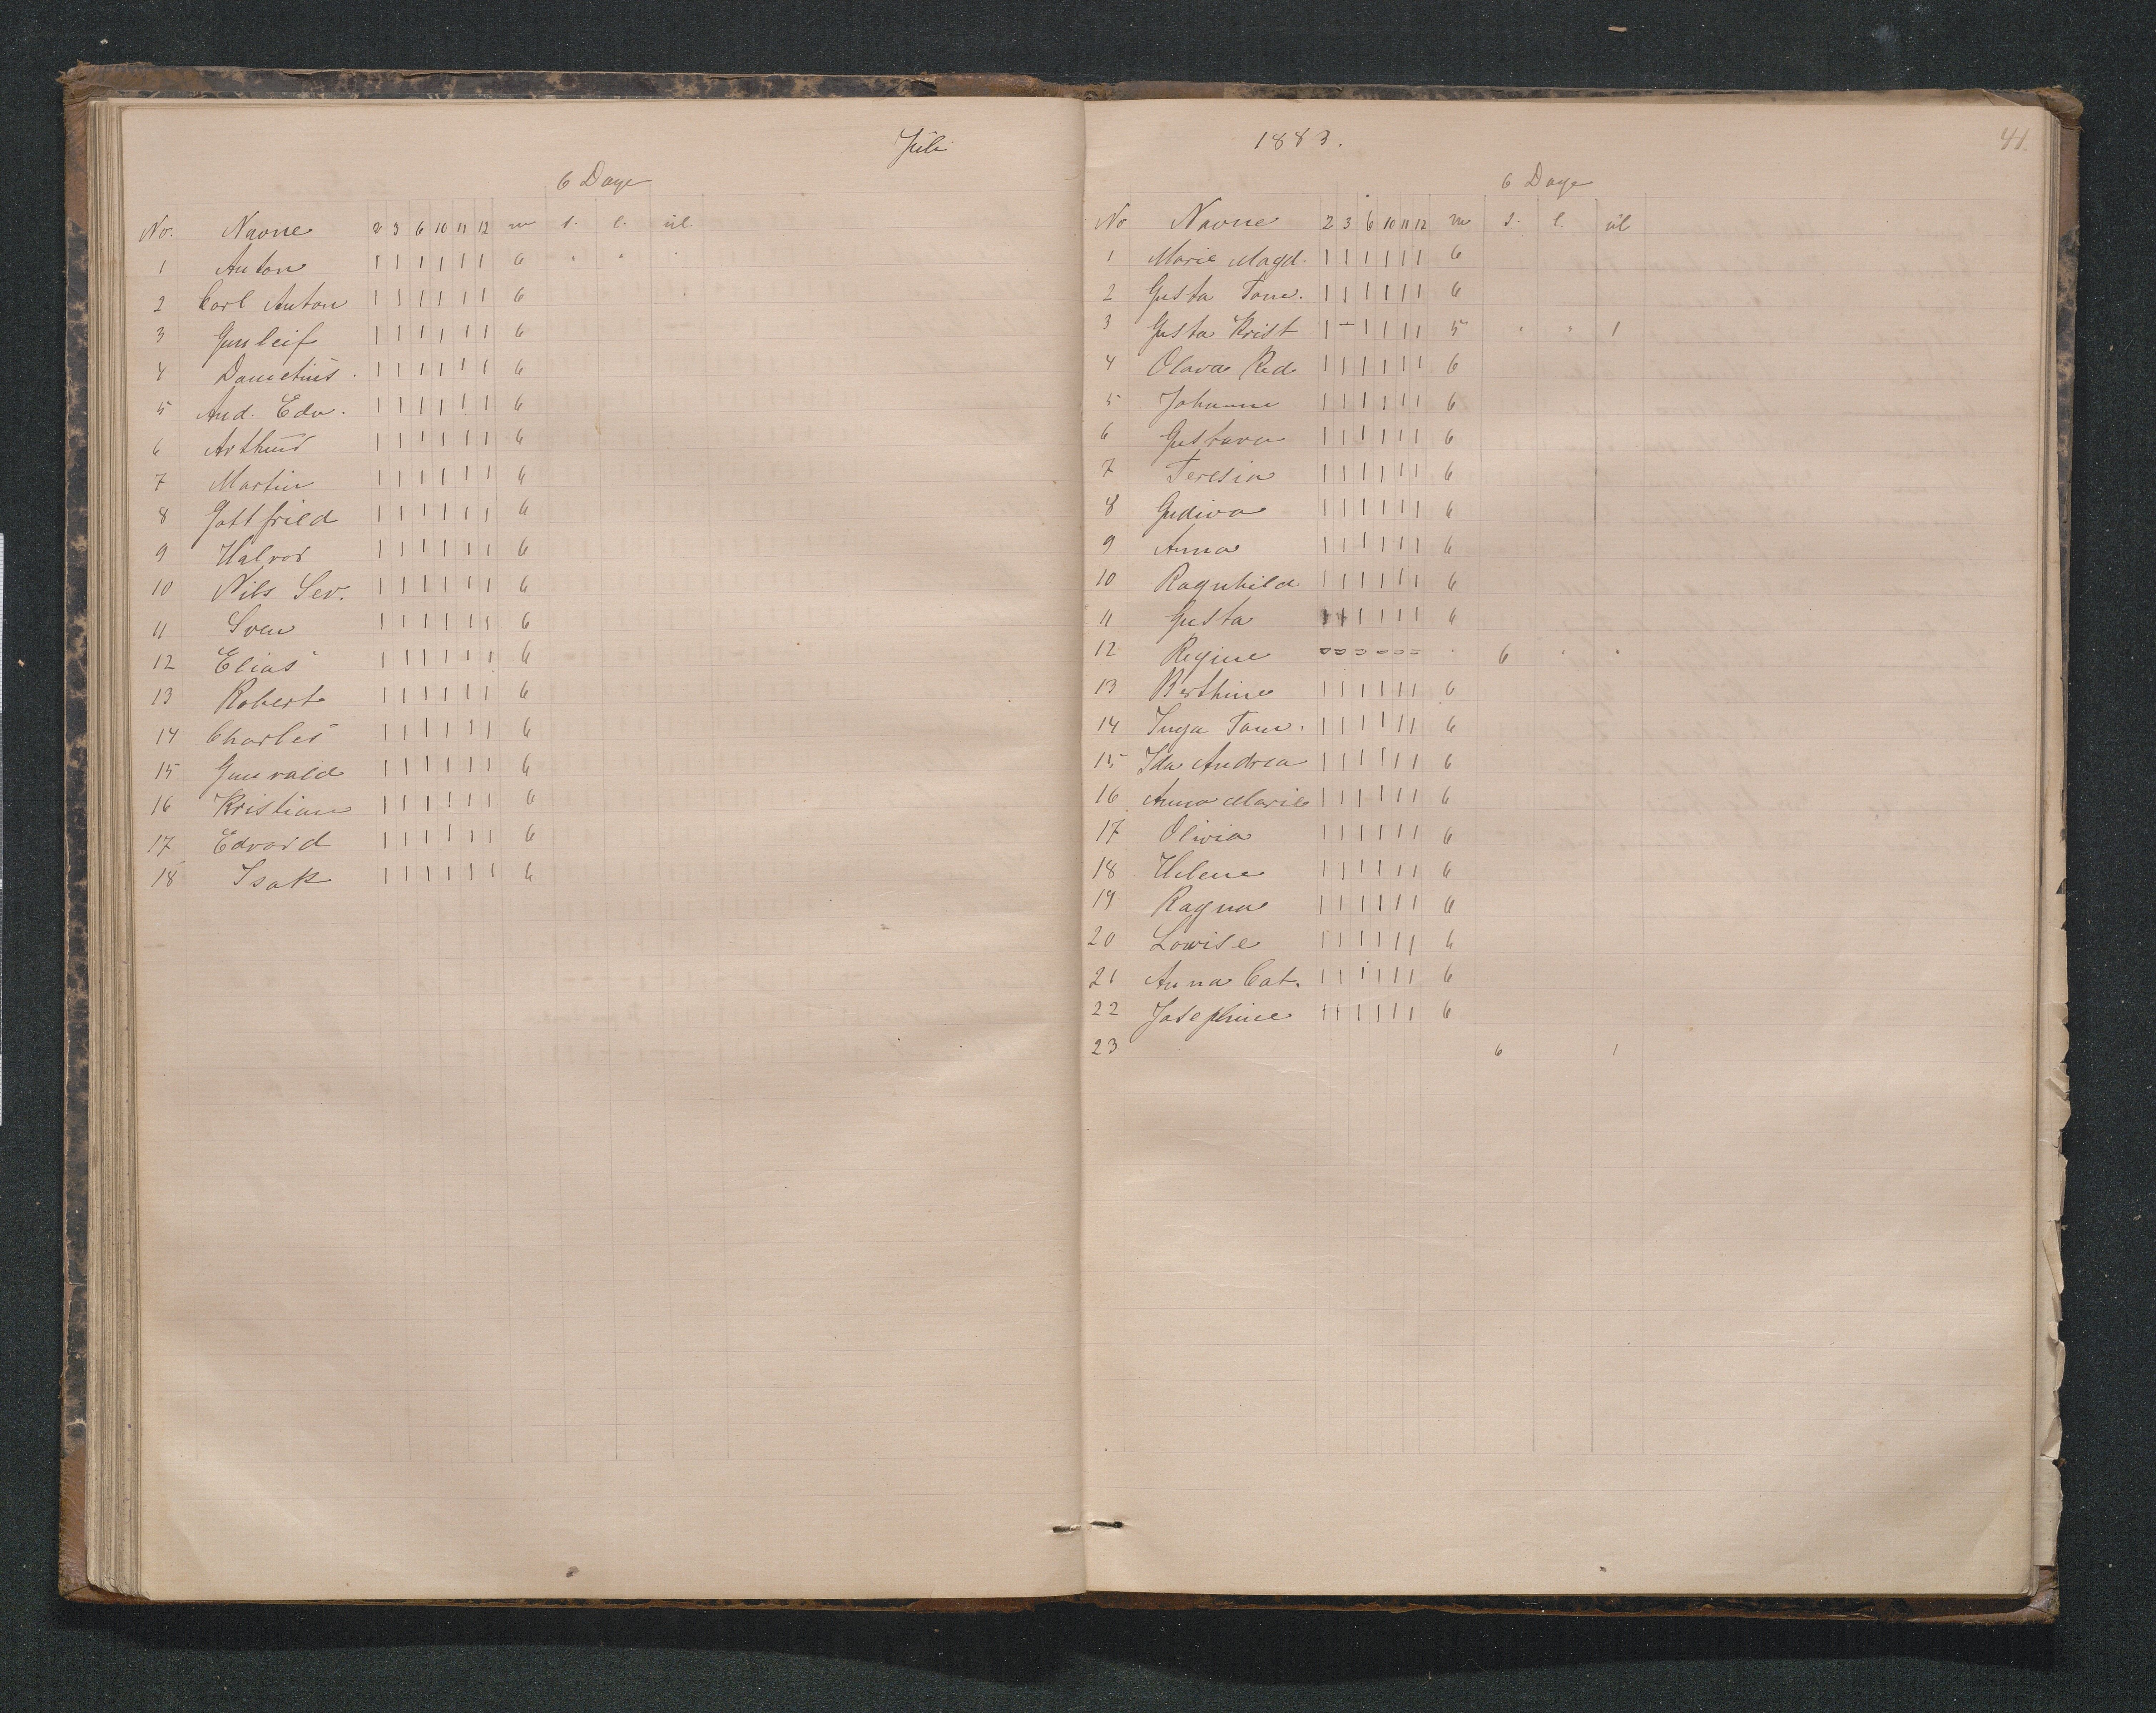 Juli
6 Dage
No. Navne 2 3 6 10 11 12 m s. l. ul.
1 Anton 1 1 1 1 1 1 6 " " "
2 Carl Anton 1 1 1 1 1 1 6
3 Gunleif 1 1 1 1 1 1 6
4 Danietius. 1 1 1 1 1 1 6
5 And. Edv. 1 1 1 1 1 1 6
6 Arthur 1 1 1 1 1 1 6
7 Martin 1 1 1 1 1 1 6
8 Gottfried 1 1 1 1 1 1 6
9 Halvor 1 1 1 1 1 1 6
10 Nils Sev. 1 1 1 1 1 1 6
11 Sven 1 1 1 1 1 1 6
12 Elias 1 1 1 1 1 1 6
13 Robert 1 1 1 1 1 1 6
14 Charles 1 1 1 1 1 1 6
15 Gunvald 1 1 1 1 1 1 6
16 Kristian 1 1 1 1 1 1 6
17 Edvard 1 1 1 1 1 1 6
18 Isak 1 1 1 1 1 1 6
1883.
41.
6 Dage
No Navne 2 3 6 10 11 12 m s. l. ul
1 Marie Magd. 1 1 1 1 1 1 6
2 Gusta Tom. 1 1 1 1 1 1 6
3 Gusta Krist 1 - 1 1 1 1 5 " " 1
4 Olava Red. 1 1 1 1 1 1 6
5 Johanne 1 1 1 1 1 1 6
6 Gustava 1 1 1 1 1 1 6
7 Teresia 1 1 1 1 1 1 6
8 Gudiva 1 1 1 1 1 1 6
9 Anna 1 1 1 1 1 1 6
10 Ragnhild 1 1 1 1 1 1 6
11 Gusta 1 1 1 1 1 1 6
12 Regine = = = = = = " 6 " "
13 Berthine 1 1 1 1 1 1 6
14 Inga Tom. 1 1 1 1 1 1 6
15 Ida Andrea 1 1 1 1 1 1 6
16 Anna Marie 1 1 1 1 1 1 6
17 Olivia 1 1 1 1 1 1 6
18 Helene 1 1 1 1 1 1 6
19 Ragna 1 1 1 1 1 1 6
20 Lovise 1 1 1 1 1 1 6
21 Anna Cat. 1 1 1 1 1 1 6
22 Josephine 1 1 1 1 1 1 6
23 6 1